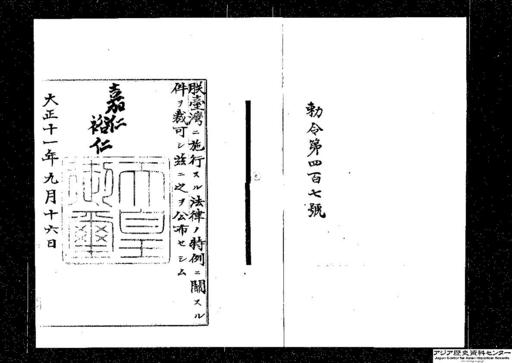 勅令第四百七號
朕臺灣ニ施行スル法律ノ特例ニ關スル
件ヲ裁可シ茲ニ之ヲ公布セシム
嘉仁
裕仁
天皇御璽
大正十一年九月十六日
アジア歴史資料センター
Japan Center for Asian Historical Records